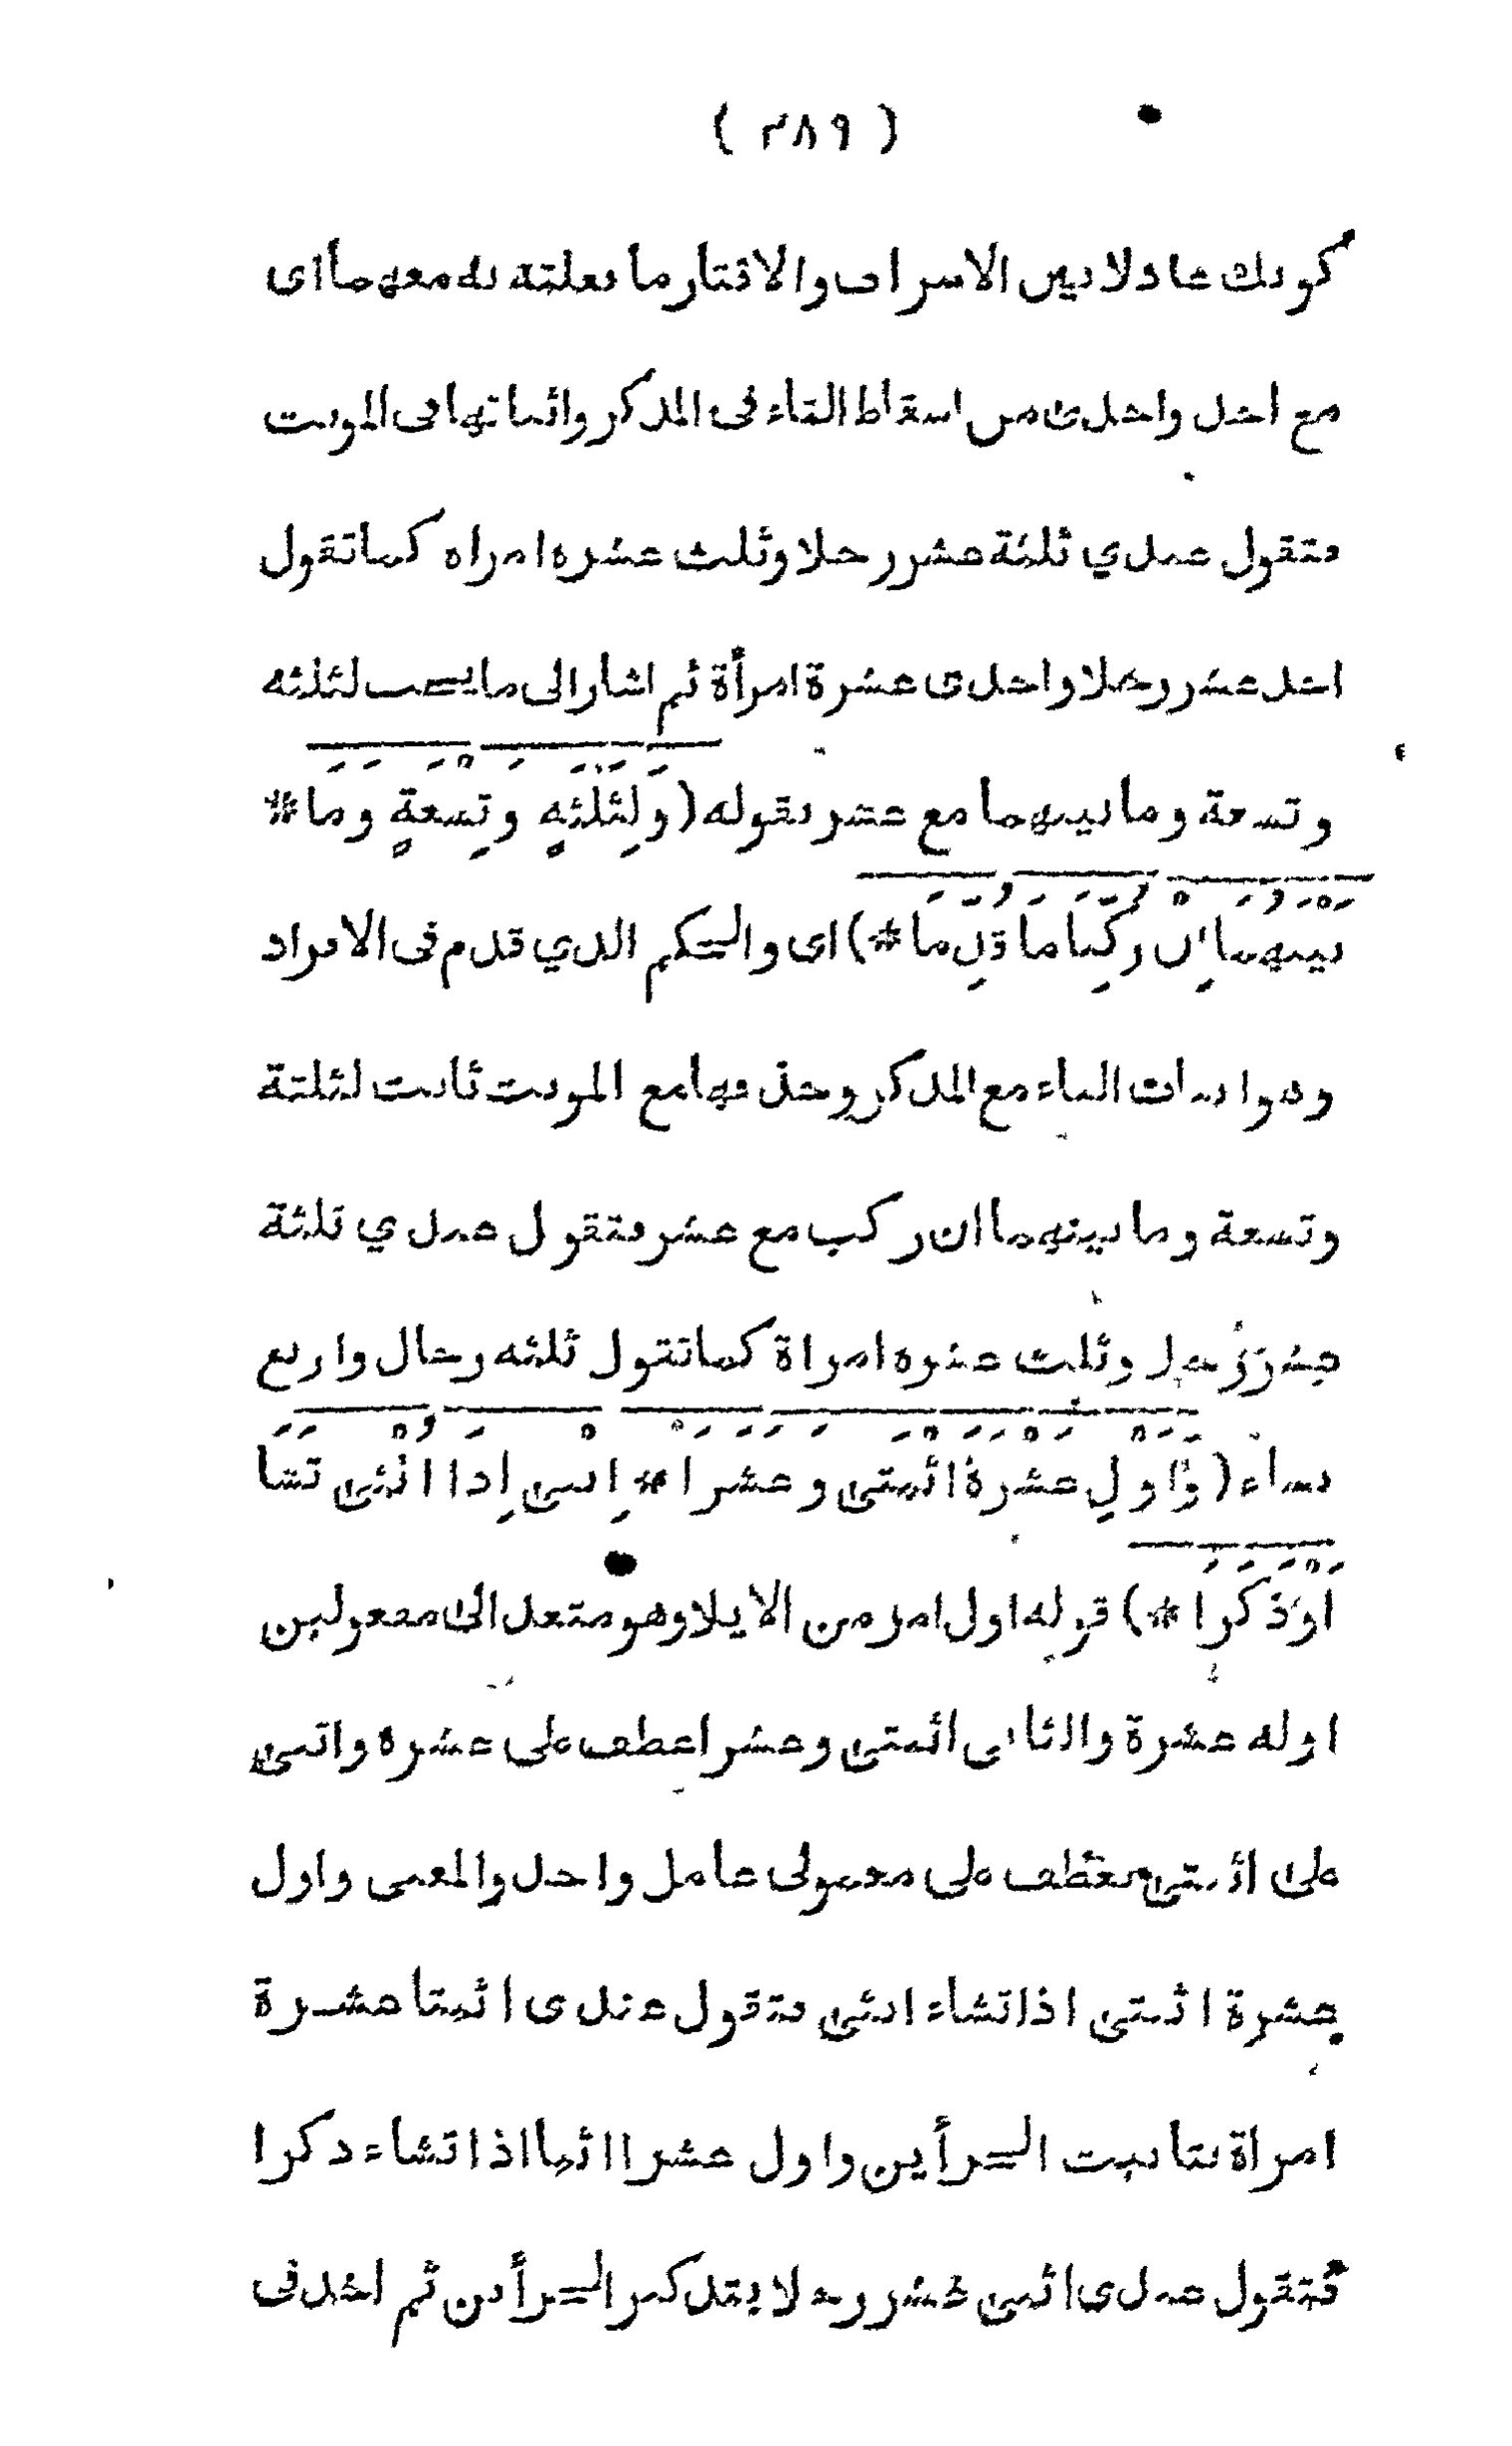 ( ٣٨٩ )
كونك عادلا بين الاسراف والاقتار ما فعلته به معهما اى
مع احد واحدى من اسقاط التاء فى المذكر واثباتها فى المونث
فتقول عندي ثلثة عشر رجلا وثلث عشره امراه كما تقول
احد عشر رجلا واحدى عشرة امرأة ثم اشار الى ما يجب لثلثه
وتسعة وما بينهما مع عشر بقوله (وَلِثَلْثَةٍ وتِسعةٍ وَما *
بينهما اِن رُكّبا ما قدِّما *) اى والحكم الذي قدم فى الافراد
وهو اثبات التاء مع المذكر وحذفها مع المونث ثابت لثلثة
وتسعة وما بينهما ان ركب مع عشر فتقول عندي ثلثة
عشر رجلا وثلث عشره امراة كما تقول ثلثه رجال واربع
نساء (وَاَولِ عَشرةَ اثنتى وعشرا * اِثنى اِذا اُنثى تشا
اَوْ ذَكَرا *) قوله اول امر من الايلاء وهو متعد الى مفعولين
اوله عشرة والثانى اثنتى وعشرا عطف على عشره واثنى
على اثنتى فعطف على معمولى عامل واحد والمعنى واول
عشرة اثنتى اذا تشاء انثى فتقول عندى اثنتا عشرة
امراة بتانيث الجزأين واول عشرا اثنا اذا تشاء ذكرا
فتقول عندى اثنى عشر رجلا بتذكير الجزأين ثم اخذ فى